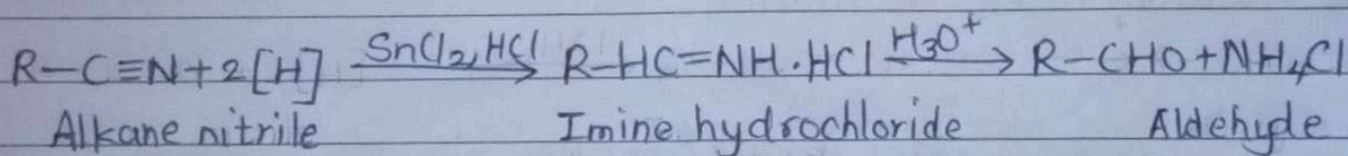 R-C≡N+2[H] SnCl2,HCl → R-HC=NH·HCl H3O+ → R-CHO+NH4Cl
Alkane nitrile Imine hydrochloride Aldehyde